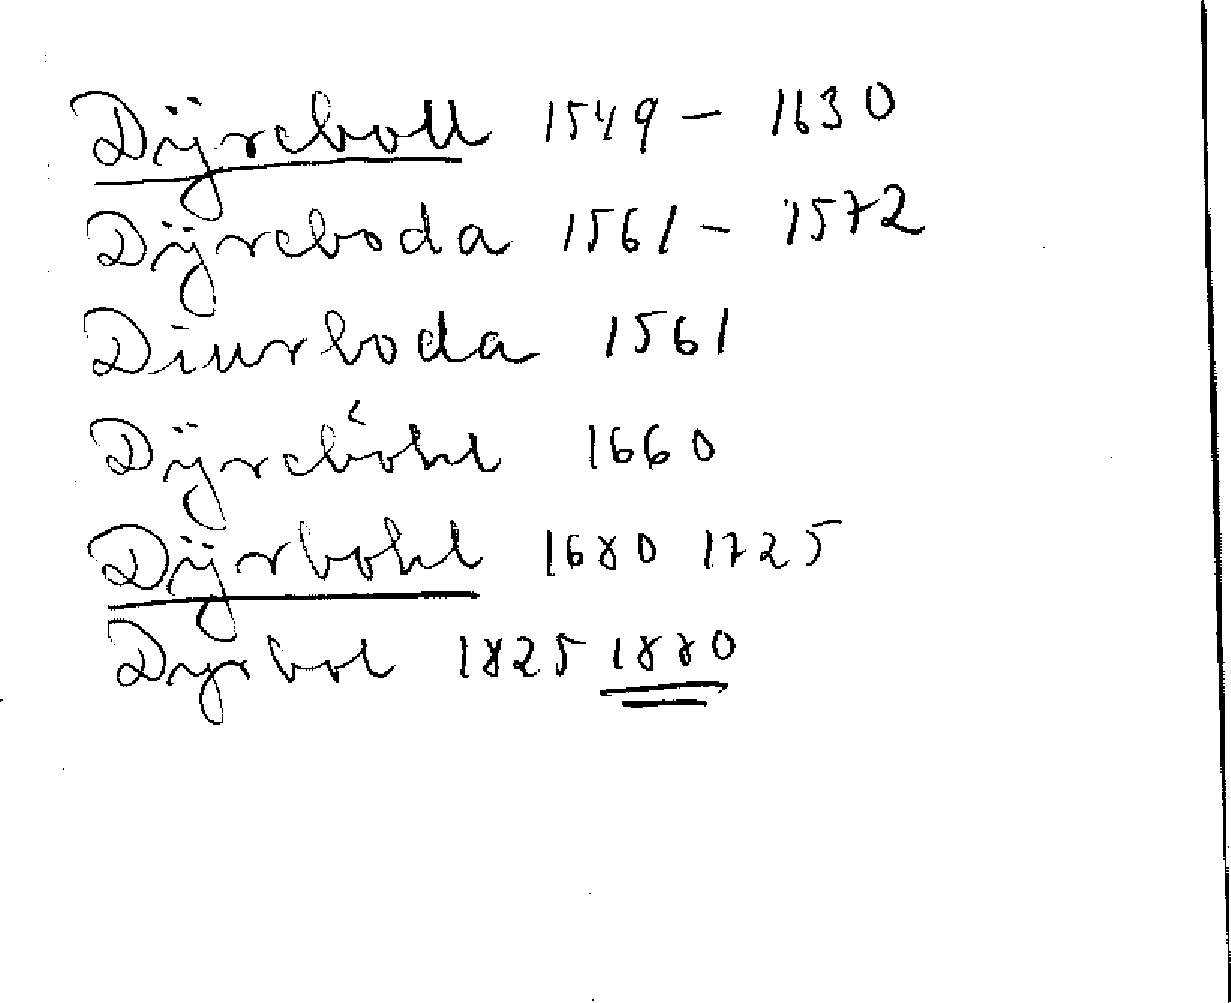 Dÿreboll 1549 - 1630
Dÿreboda 1561 - 1572
Diurboda 1561
Dÿrebohl 1660
Dÿrbohl 1680 1725
Dyrbol 1825 1880